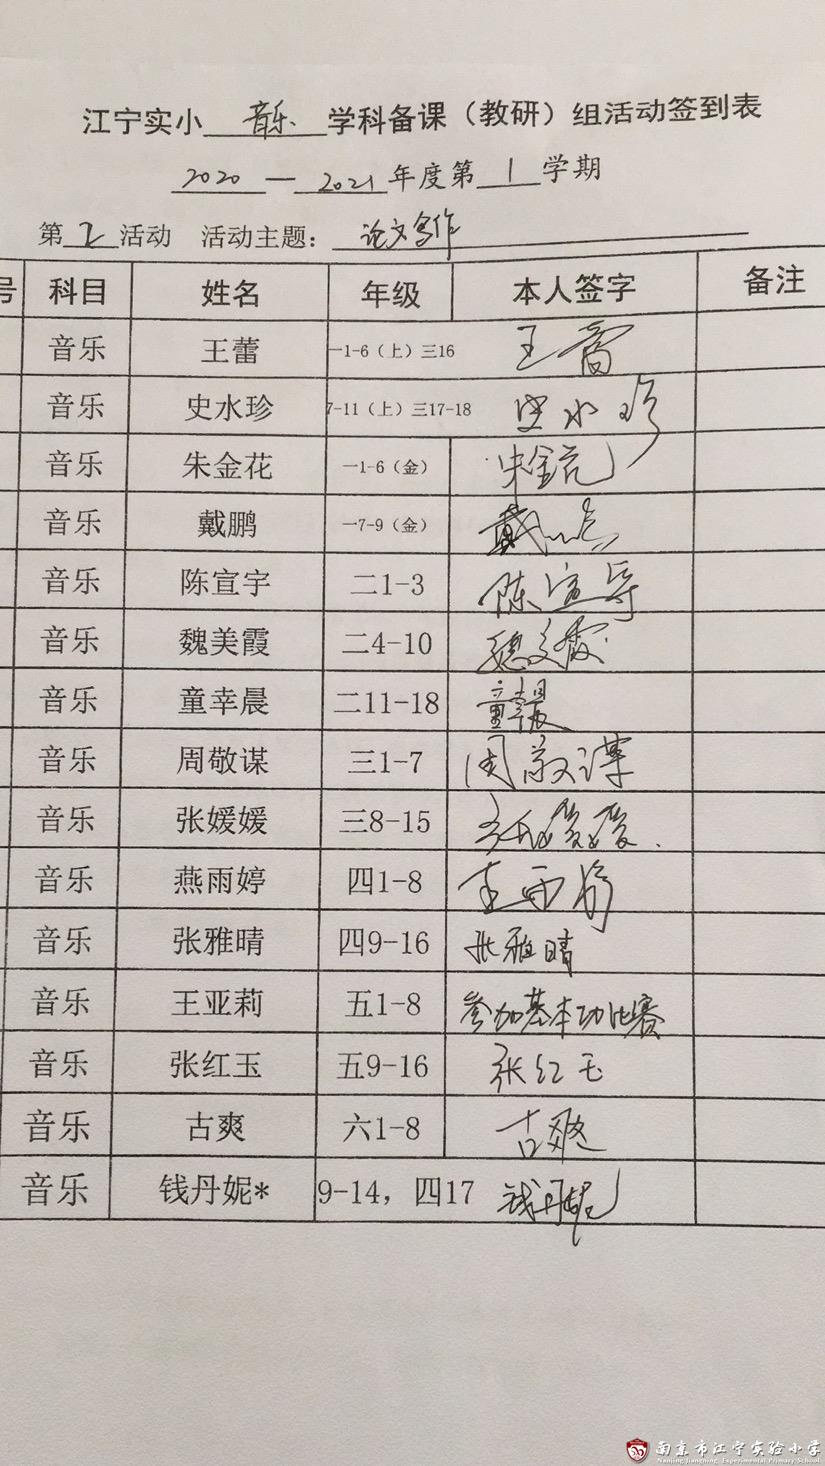 江宁实小 音乐 学科备课（教研）组活动签到表
2020 — 2021 年度第 1 学期
第 2 活动 活动主题： 论文写作
号 科目 姓名 年级 本人签字 备注
音乐 王蕾 一1-6（上）三16 王蕾
音乐 史水珍 7-11（上）三17-18 史水珍
音乐 朱金花 一1-6（金） 朱金花
音乐 戴鹏 一7-9（金） 戴
音乐 陈宣宇 二1-3 陈宣宇
音乐 魏美霞 二4-10 魏美霞
音乐 童幸晨 二11-18 童幸晨
音乐 周敬谋 三1-7 周敬谋
音乐 张媛媛 三8-15 张媛媛
音乐 燕雨婷 四1-8 燕雨婷
音乐 张雅晴 四9-16 张雅晴
音乐 王亚莉 五1-8 参加基本功比赛
音乐 张红玉 五9-16 张红玉
音乐 古爽 六1-8 古爽
音乐 钱丹妮* 9-14，四17 钱丹妮
南京市江宁实验小学
Nanjing Jiangning Experimental Primary School